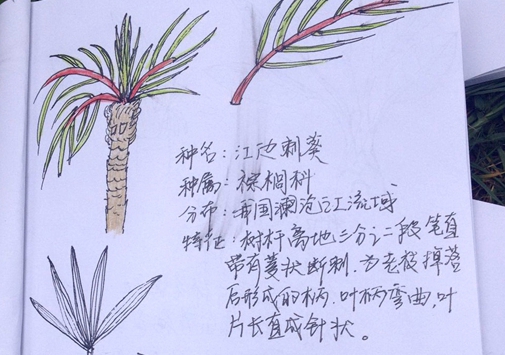 种名：江边刺葵
种属：棕榈科
分布：我国澜沧江流域
特征：树杆离地三分之二段笔直
带有菱状断刺，为老枝掉落
后形成的柄，叶柄弯曲，叶
片长直成针状。